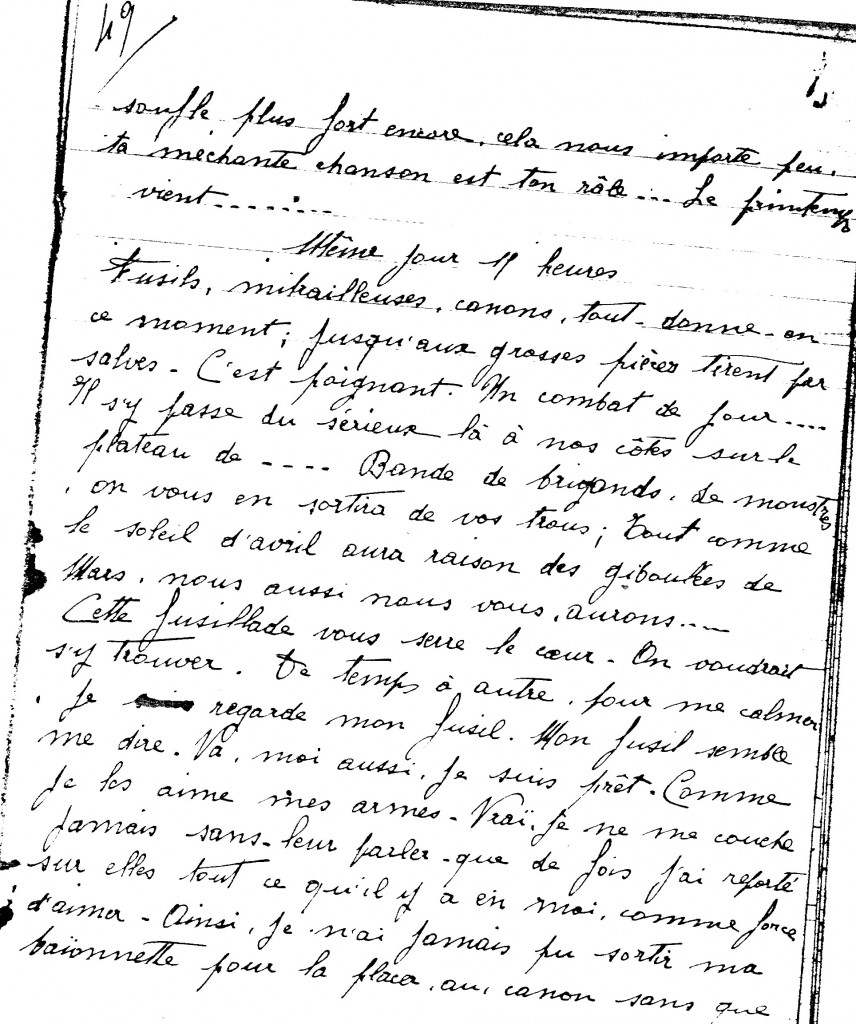 49/
souffle plus fort encore, cela nous importe peu,
ta méchante chanson est ton rôle... Le printemps
vient........
Même jour 11 heures
Fusils, mitrailleuses, canons, tout donne en
ce moment; jusqu'aux grosses pièces tirent par
salves - C'est poignant. Un combat de jour....
Il s'y passe du sérieux là à nos côtés sur le
plateau de .... Bande de brigands, de monstres
, on vous en sortira de vos trous; Tout comme
le soleil d'avril aura raison des giboulées de
Mars, nous aussi nous vous, aurons....
Cette fusillade vous serre le cœur - On voudrait
s'y trouver. De temps à autre, pour me calmer
, je regarde mon fusil. Mon fusil semble
me dire - Va, moi aussi, je suis prêt - Comme
je les aime mes armes - Vraï, je ne me couche
jamais sans leur parler - que de fois j'ai reporté
sur elles tout ce qu'il y a en moi, comme force
d'aimer - Ainsi, je n'ai jamais pu sortir ma
baïonnette pour la placer, au, canon sans que